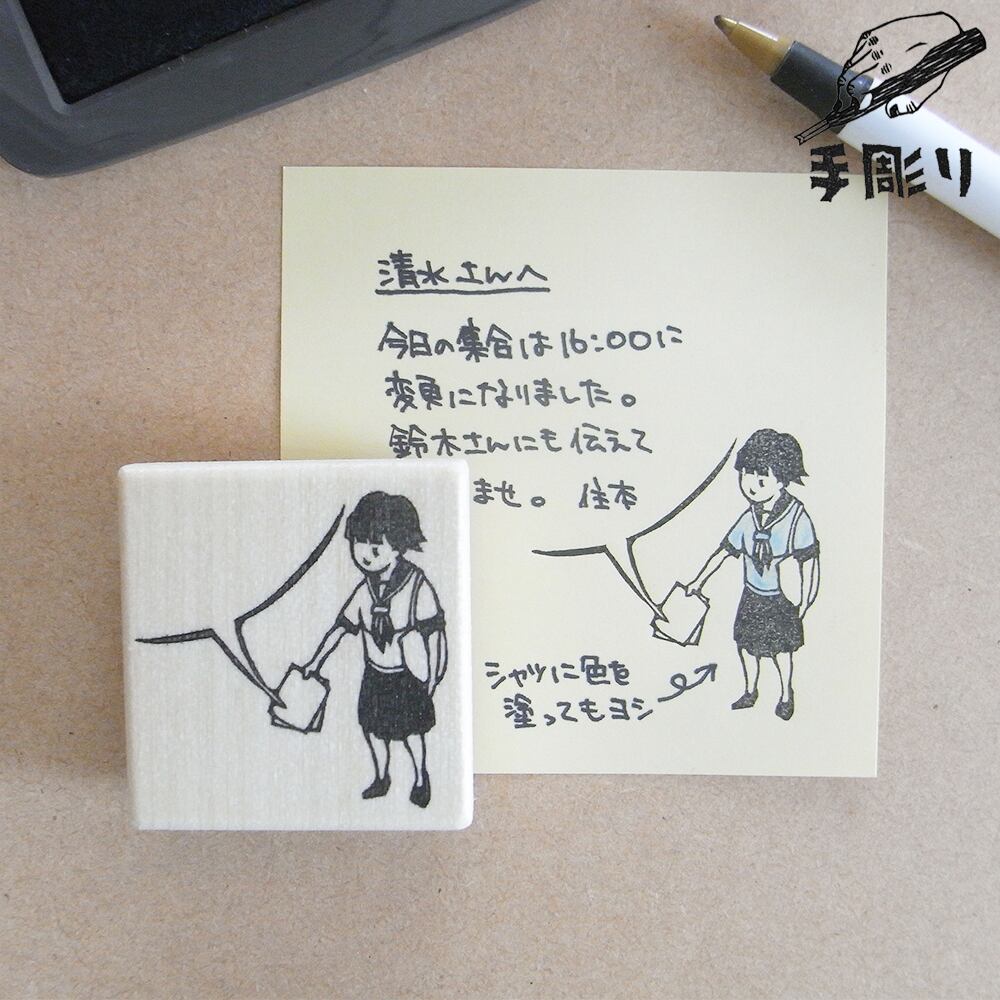 手彫り
清水さんへ
今日の集合は16:00に
変更になりました。
鈴木さんにも伝えて
ませ。 住本
シャツに色を
塗ってもヨシ